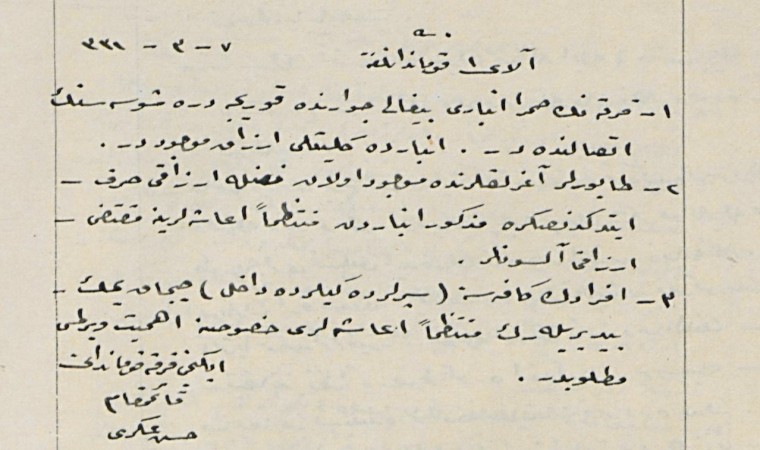 ٧ - ٣ - ٣٣١
آلای ١ قوماندانلغنه
١ـ فرقه نك صحرا انباری بیغالی جوارنده قوریجه دره شوسه سنك
اتصالنده در . انبارده كلیتلی ارزاق موجوددر .
٢ـ طابورلر آغرلقلرنده موجود اولان فضله ارزاقی صرف
ایتدكدنصكره مذكور انباردن منتظماً اعاشه لرینه مقتضی
ارزاقی آلسونلر .
٣ـ افرادك كافه سنه (سپرلرده كیلرده داخل) صیجاق یمك
ییدیریله رك منتظماً اعاشه لری خصوصنه اهمیت ویرلمسی
مطلوبدر .
ایكنجی فرقه قوماندانی
قائمقام
حسن عسكری